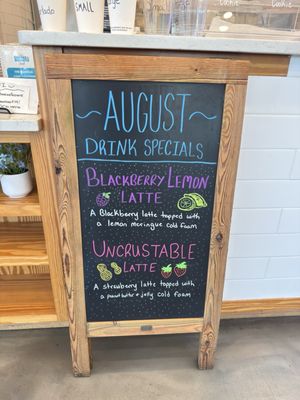 SMALL
Cookie
Cookie
~ AUGUST ~
DRINK SPECIALS
BLACKBERRY LEMON
LATTE
A Blackberry latte topped with
a lemon meringue cold foam
UNCRUSTABLE
LATTE
A strawberry latte topped with
a peanut butter + jelly cold foam